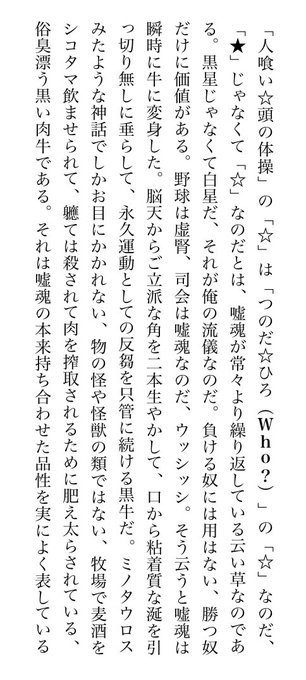 「人喰い☆頭の体操」の「☆」は「つのだ☆ひろ（Who?）」の「☆」なのだ、
「★」じゃなくて「☆」なのだとは、嘘魂が常々より繰り返している云い草なのであ
る。黒星じゃなくて白星だ、それが俺の流儀なのだ。負ける奴には用はない、勝つ奴
だけに価値がある。野球は虚腎、司会は嘘魂なのだ、ウッシッシ。そう云うと嘘魂は
瞬時に牛に変身した。脳天からご立派な角を二本生やかして、口から粘着質な涎を引
っ切り無しに垂らして、永久運動としての反芻を只管に続ける黒牛だ。ミノタウロス
みたような神話でしかお目にかかれない、物の怪や怪獣の類ではない、牧場で麦酒を
シコタマ飲ませられて、軈ては殺されて肉を搾取されるために肥え太らされている、
俗臭漂う黒い肉牛である。それは嘘魂の本来持ち合わせた品性を実によく表している